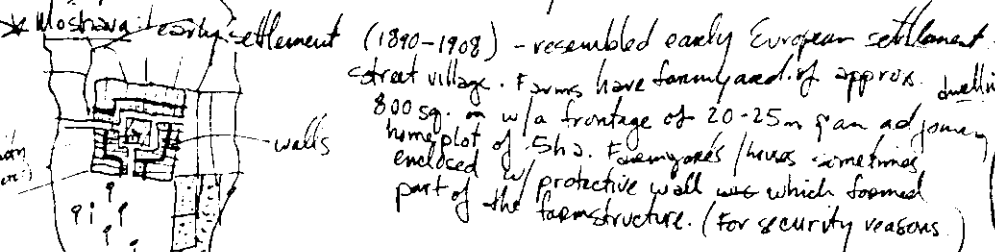 * Moshava: early settlement (1890-1908) - resembled early European settlement
street village. Farms have farmyard of approx. dwelli
800 sq. m w/a frontage of 20-25m & an adjoining
homeplot of 5ha. Farmyards / houses sometimes
enclosed w/ protective wall which formed
part of the farmstructure. (For security reasons.)
walls